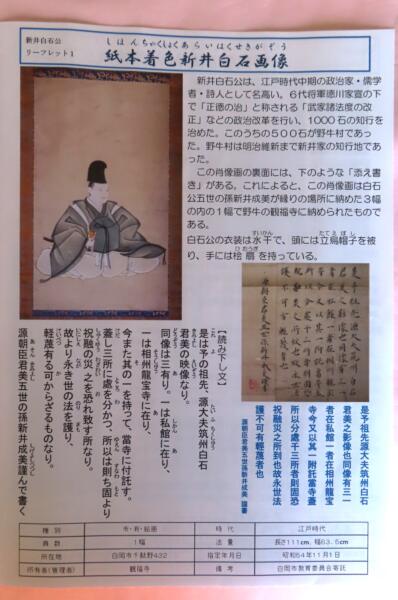 新井白石公
リーフレット1
しほんちゃくしょくあらいはくせきがぞう
紙本着色新井白石画像
新井白石公は、江戸時代中期の政治家・儒学
者・詩人として名高い。6代将軍徳川家宣の下
で「正徳の治」と称される「武家諸法度の改
正」などの政治改革を行い、1000石の知行を
治めた。このうちの500石が野牛村であっ
た。野牛村は明治維新まで新井家の知行地であ
った。
この肖像画の裏面には、下のような「添え書
き」がある。これによると、この肖像画は白石
公五世の孫新井成美が縁りの場所に納めた3幅
の内の1幅で野牛の観福寺に納められたもので
ある。
白石公の衣装は水干で、頭には立烏帽子を被
り、手には桧扇を持っている。
【読み下し文】
是は予の祖先、源大夫筑州白石
君美の映像なり。
同像は三有り。一は私館に在り、
一は相州龍宝寺に在り、
今また其の一を持って、當寺に付託す。
蓋し三所に處を分かつ、所以は則ち固より
祝融の災を恐れ致す所なり。
故より永き世の法を護り、
軽蔑有る可からざるものなり。
源朝臣君美五世の孫新井成美謹んで書く
是予祖先源大夫筑州白石
君美之影像也同像有三一
者在私館一者在相州龍宝
寺今又以其一附託當寺蓋
所以分處于三所者則固恐
祝融之災之所到也故永世法
護不可有軽蔑者也
源朝臣君美五世孫新井成美 謹書
種別 市・有・絵画 時代 江戸時代
員数 1幅 法量 長さ111cm、幅63.5cm
所在地 白岡市千駄野432 指定年月日 昭和54年11月1日
所有者(管理者) 観福寺 備考 白岡市教育委員会寄託